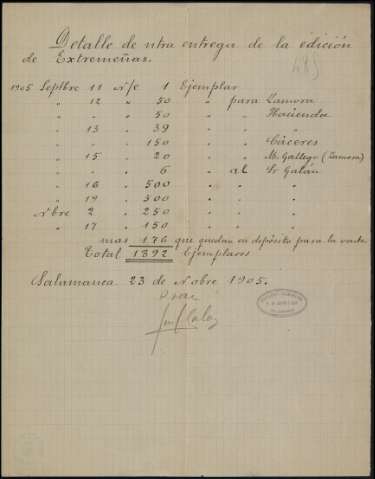 Detalle de ntra entrega de la edición
de Extremeñas.
485
1905 Septbre 11 N/e 1 Ejemplar
" 12 " 50 " para Zamora
" " 50 " "
" 13 " 39 " "
" " 150 " " Cáceres
" 15 " 20 " " M. Gallego (Zamora)
" " 6 " al Sr Galán
" 16 " 500 " " "
" 19 " 300 " " "
Nbre 2 " 250 " " "
" 17 " 150 " " "
mas 176 que quedan en depósito para la venta
Total 1892 Ejemplares
Salamanca 23 de Nobre 1905.